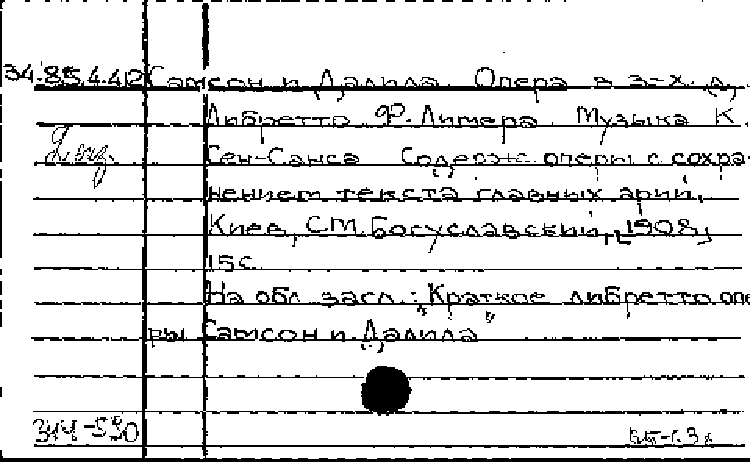 34.85.4.42 Самсон и Далила. Опера в 3-х. д.
Либретто Ф. Лимера. Музыка К.
Сен-Санса Содерж. оперы с сохра-
нением текста главных арий.
Киев, С.М. Богуславский, [1908]
15с.
На обл. загл.: "Краткое либретто опе
ры Самсон и Далила"
344-590